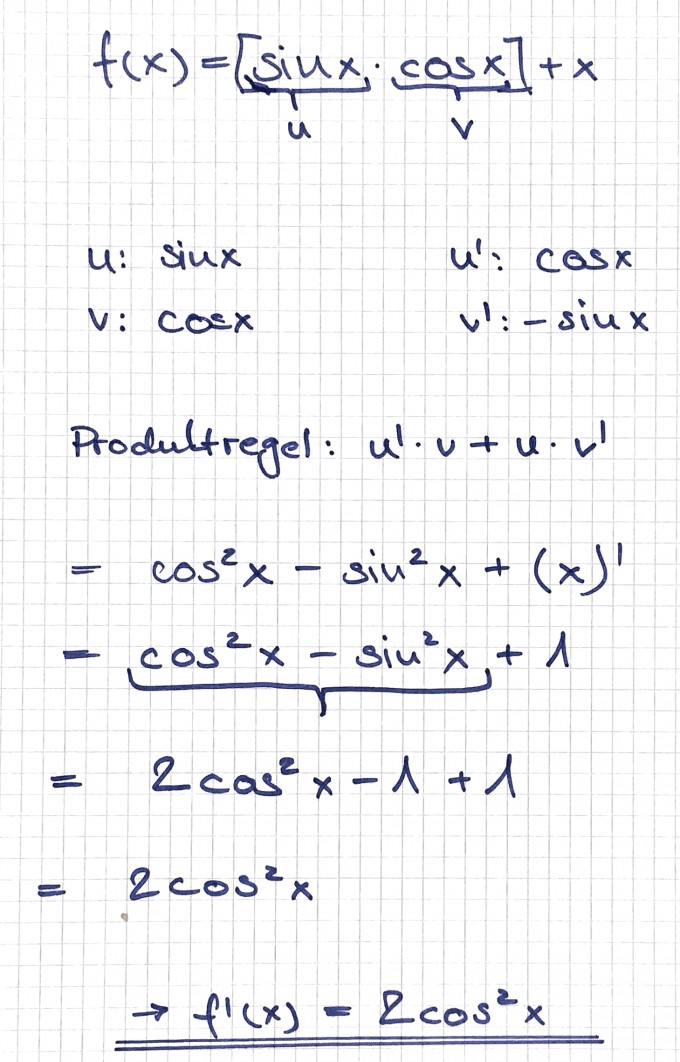 f(x) = [sin x · cos x] + x
u v
u: sin x u': cos x
v: cos x v': - sin x
Produktregel: u' · v + u · v'
= cos² x - sin² x + (x)'
= cos² x - sin² x + 1
= 2 cos² x - 1 + 1
= 2 cos² x
→ f'(x) = 2 cos² x